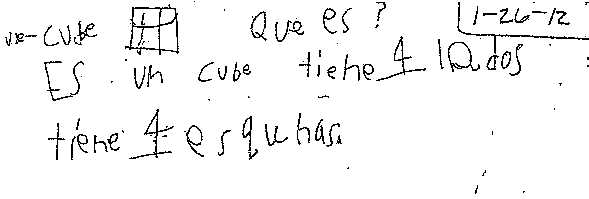 cube Que es? 1-26-12
ES un cube tiene 4 lados
tiene 4 esquinas.